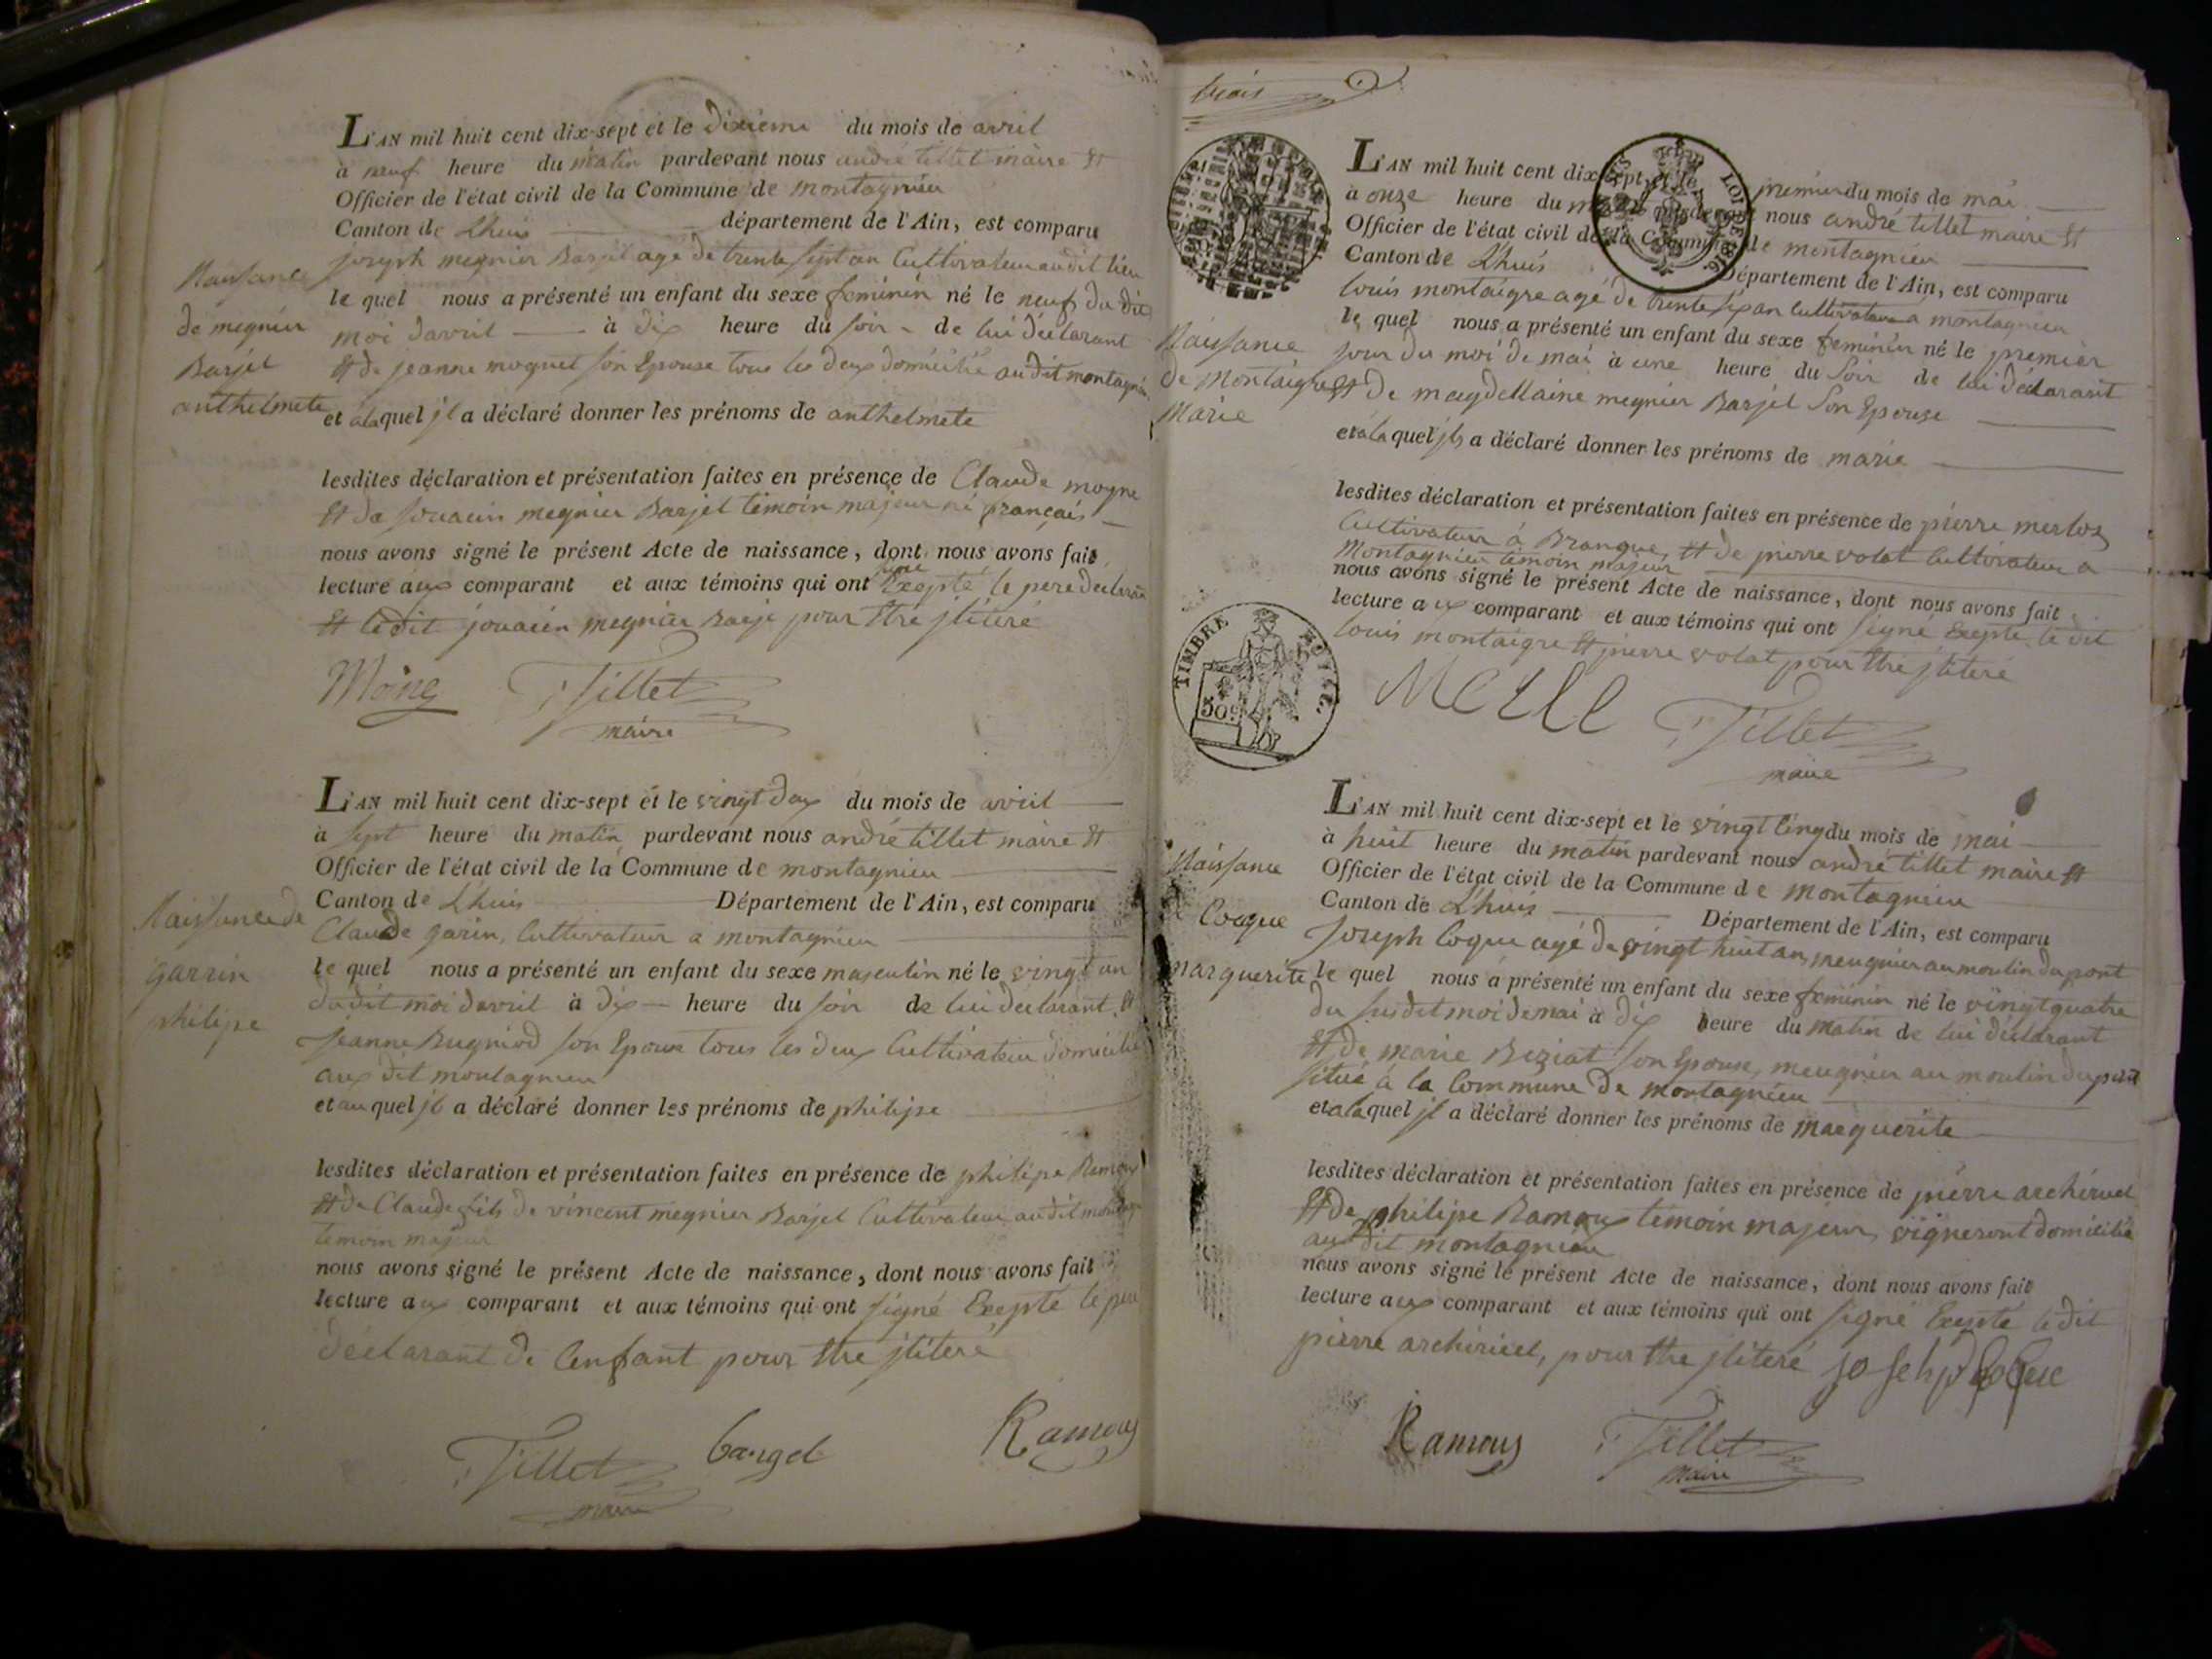 L'AN mil huit cent dix-sept et le dixieme du mois de avril
à neuf heure du matin pardevant nous andré tillet maire et
Officier de l'état civil de la Commune de montagnieu
Canton de Lhuis département de l'Ain, est comparu
joseph megnier Barjel agé de trente sept an Cultivateur audit lieu
le quel nous a présenté un enfant du sexe feminin né le neuf du dit
moi davril à dix heure du soir de lui déclarant
et de jeanne moynet son Epouse tous les deux domicilié audit montagnieu
et alaquel jl a déclaré donner les prénoms de anthelmete
Naissance
de megnier
Barjel
anthelmete
lesdites déclaration et présentation faites en présence de Claude moyne
et de jouacin megnier Barjel témoin majeur né français
nous avons signé le présent Acte de naissance, dont nous avons fait
lecture aux comparant et aux témoins qui ont signé Exepté le pere declarant
et ledit jouacin megnier Barje pour être jliteré
Moine Tillet
maire
L'AN mil huit cent dix-sept et le vingt deux du mois de avril
à sept heure du matin pardevant nous andré tillet maire et
Officier de l'état civil de la Commune de montagnieu
Canton de Lhuis Département de l'Ain, est comparu
Claude garin, Cultivateur a montagnieu
le quel nous a présenté un enfant du sexe masculin né le vingt un
dudit moi davril à dix heure du soir de lui declarant, et
Jeanne Bugniod son Epouse tous les deux Cultivateur domicilié
aux dit montagnieu
et au quel jl a déclaré donner les prénoms de philipe
Naissance de
garrin
philipe
lesdites déclaration et présentation faites en présence de philipe Ramoux
et de Claude fils de vincent megnier Barjel Cultivateur audit montagnieu
temoin majeur
nous avons signé le présent Acte de naissance, dont nous avons fait
lecture aux comparant et aux témoins qui ont signé Exepté le pere
déclarant de l'enfant pour être jliteré
Tillet bargel Ramous
maire
L'AN mil huit cent dix-sept et le premier du mois de mai
à onze heure du matin pardevant nous andré tillet maire et
Officier de l'état civil de la Commune de montagnieu
Canton de Lhuis Département de l'Ain, est comparu
LOI DE 1816.
louis montaigre agé de trente six an Cultivateur a montagnieu
le quel nous a présenté un enfant du sexe feminin né le premier
jour du moi de mai à une heure du soir de lui déclarant
et de magdellaine megnier Barjel son Epouse
et ala quel jl a déclaré donner les prénoms de marie
Naissance
de Montaigre
Marie
lesdites déclaration et présentation faites en présence de pierre merloz
Cultivateur à Brangue, et de pierre volat Cultivateur a
Montagnieu témoin majeur
nous avons signé le présent Acte de naissance, dont nous avons fait
lecture aux comparant et aux témoins qui ont signé Exepté le dit
louis montaigre et pierre volat pour être jliteré
TIMBRE ROYAL
50c
Merle Tillet
maire
L'AN mil huit cent dix-sept et le vingt cinq du mois de mai
à huit heure du matin pardevant nous andré tillet maire et
Officier de l'état civil de la Commune de montagnieu
Canton de Lhuis Département de l'Ain, est comparu
Joseph Coque agé de vingt huit an, meugnier au moulin du pont
le quel nous a présenté un enfant du sexe feminin né le vingt quatre
du susdit moi de mai à dix heure du matin de lui déclarant
et de marie Beziat son Epouse, meugnier au moulin du pont
situé à la Commune de montagnieu
et ala quel jl a déclaré donner les prénoms de marguerite
Naissance
Coque
marguerite
lesdites déclaration et présentation faites en présence de pierre archirüel
et de philipe Ramoux témoin majeur, vigneront domicilié
aux dit montagnieu
nous avons signé le présent Acte de naissance, dont nous avons fait
lecture aux comparant et aux témoins qui ont signé Exepté ledit
pierre archiriüel, pour être jliteré josehp Coque
Ramous Tillet
maire